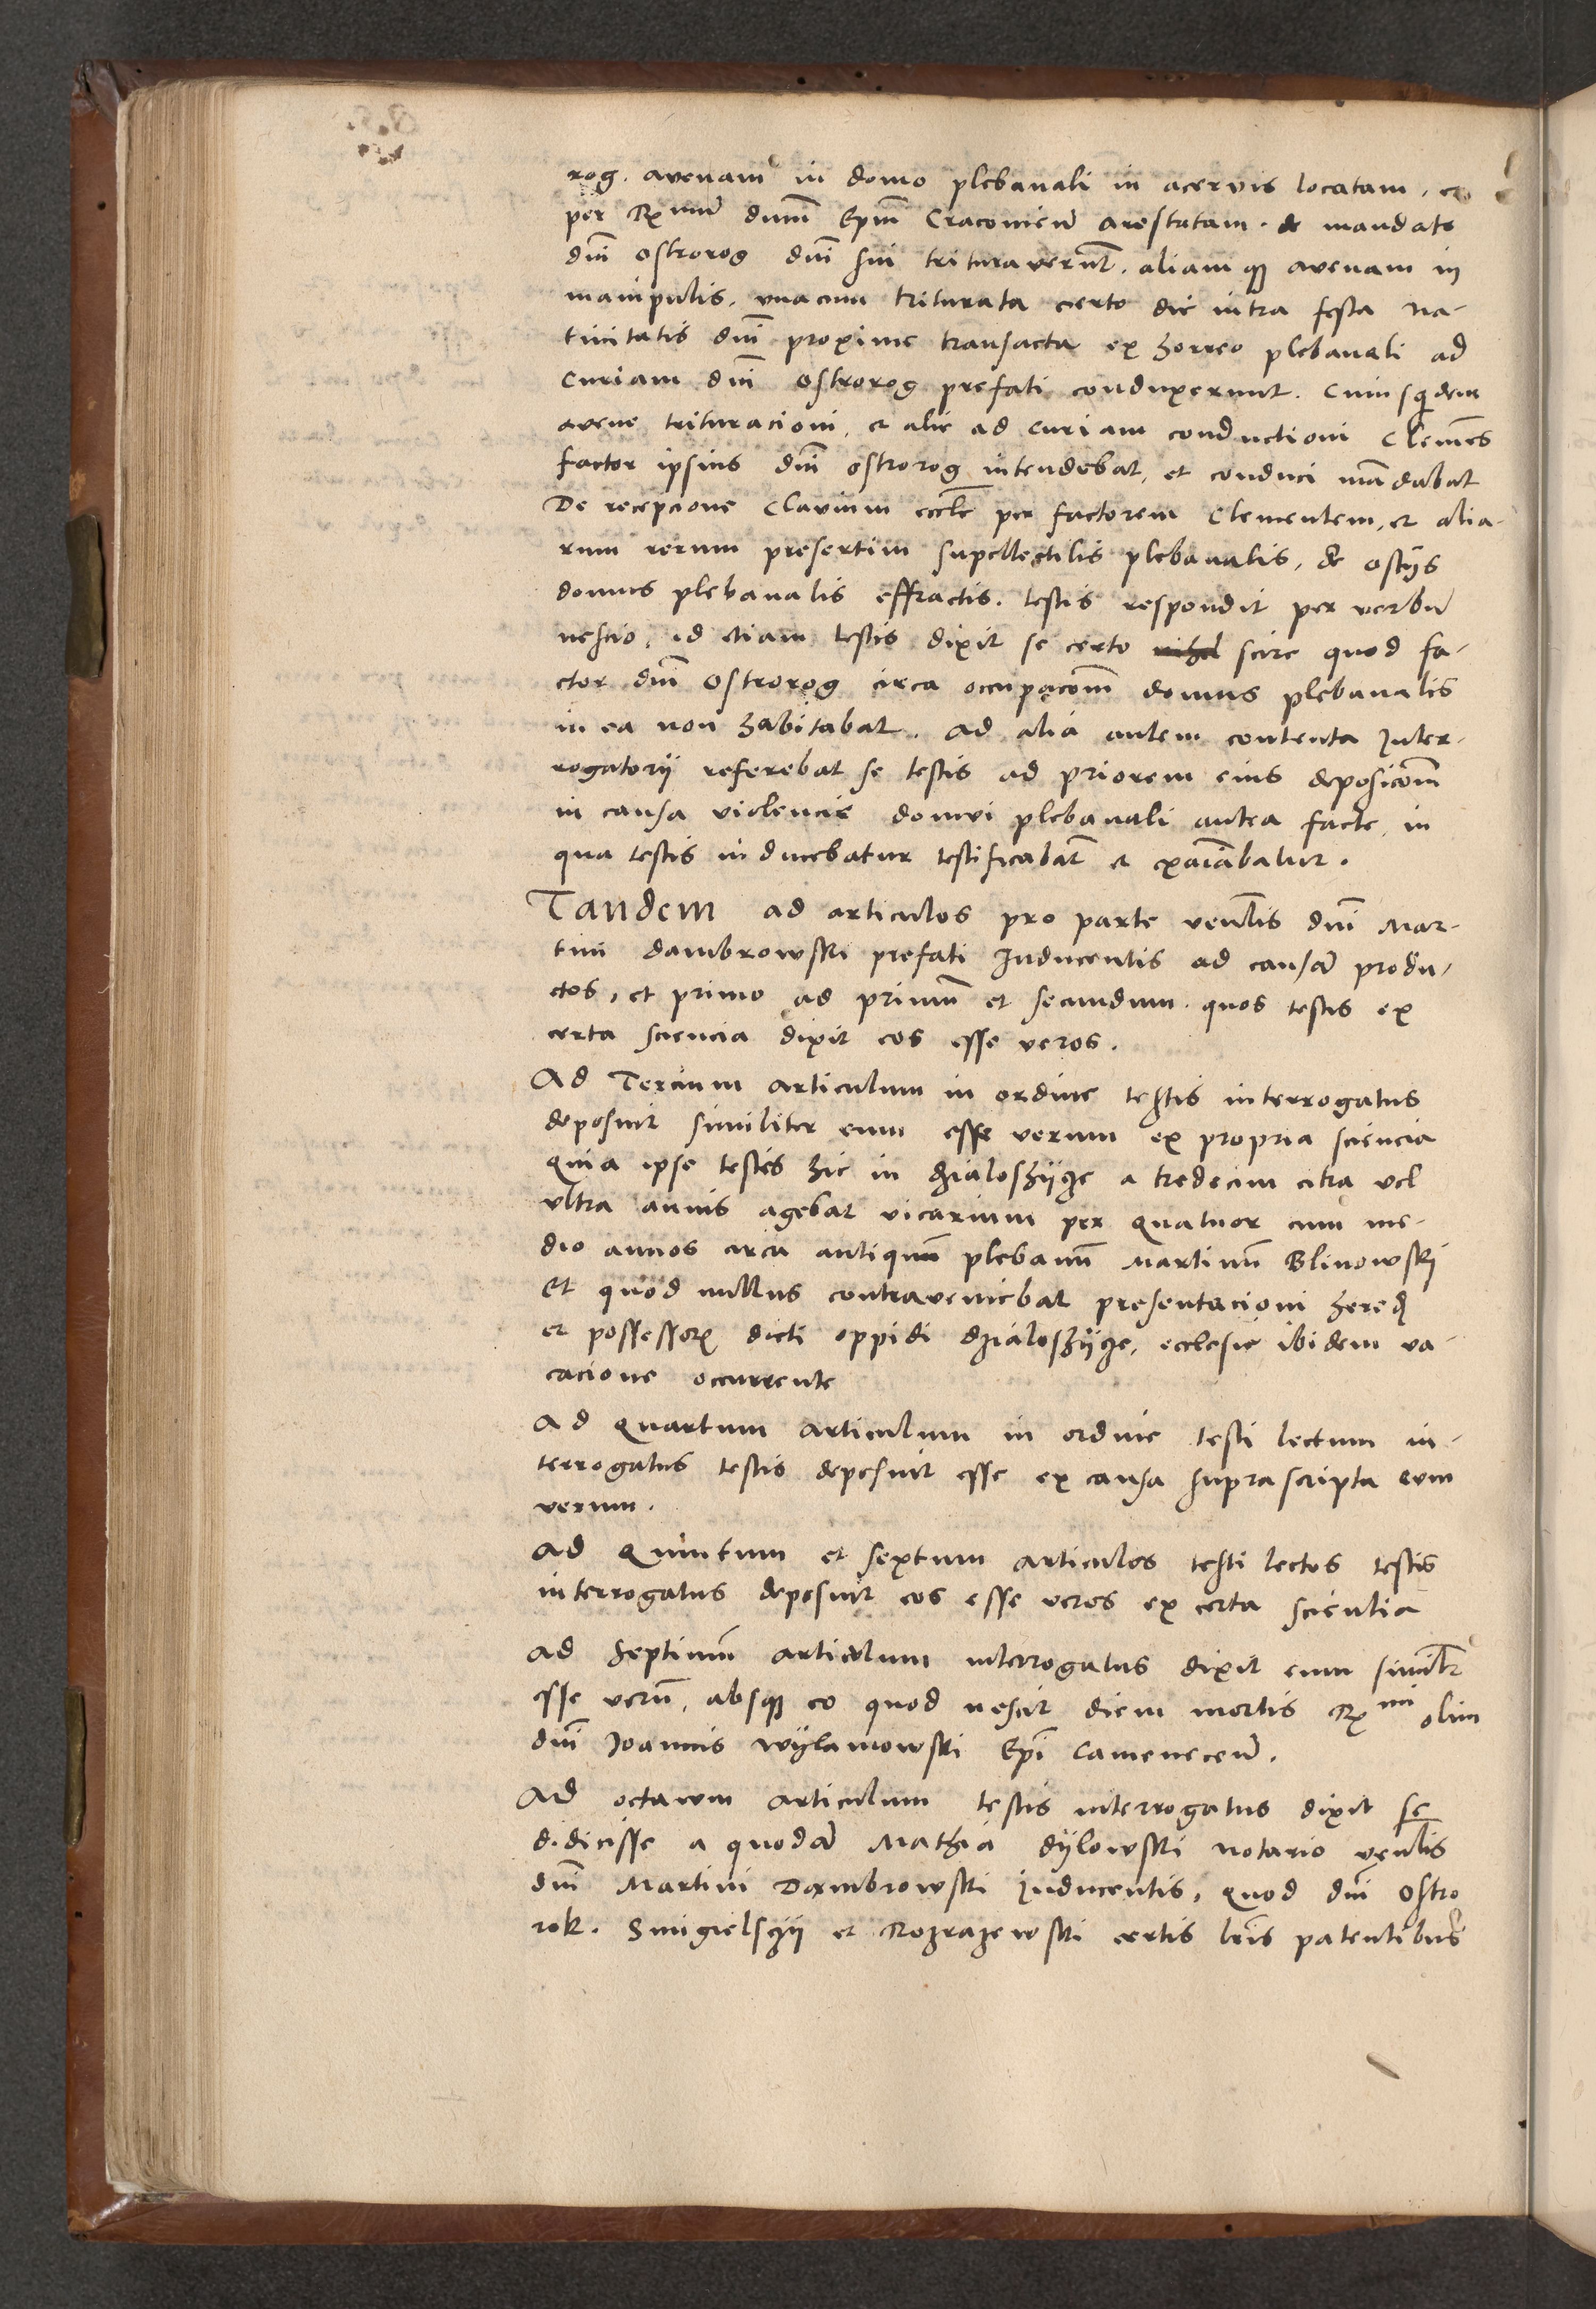 rog. avenam in domo plebanali in acervis locatam, et
per Rx̄mum dnm̄ Ep̄m Cracovien̄ arestatam. de mandato
dn̄i ostrorog dn̄i sui trituraverūt. aliamqꝫ avenam in
manipulis, vnacum triturata certo die intra festa Na-
tiuitatis dn̄i proxime transacta ex horreo plebanali ad
Curiam dn̄i Ostrorog prefati conduxerunt. Cuiusqdem
avene trituracioni, et alie ad Curiam conductioni Clemēs
factor ipsius dn̄i ostrorog intendebat, et conduci mādabat
De recepcione Clavium eccl̄e per factorem Clementem, et alia-
rum rerum presertim supellectilis plebanalis, de ostÿs
domus plebanalis effractis. testis respondit per verbū
nescio, id etiam testis dixit se certo nihil scire quod fa-
ctor dn̄i Ostrorog circa occupacōm domus plebanalis
in ea non habitabat. Ad alia autem contenta Inter-
rogatorÿ referebat se testis ad priorem eius deposicōm
in causa violencie domui plebanali antea facte, in
qua testis inducebatur testificabat̄ et exāiābatur.
Tandem ad articulos pro parte ven̄lis dn̄i Mar-
tini dambrowski prefati Inducentis ad causā produ-
ctos, et primo ad primū et secundum. quos testis ex
certa sciencia dixit eos esse veros.
Ad Tercium articulum in ordine testis interrogatus
deposuit similiter eum esse verum ex propria sciencia
Quia ipse testis hic in dzialoshÿcze a tredecim citra vel
vltra annis agebat vicarium per Quatuor cum me-
dio annos circa antiquū plebanū Martinū Blinowskj
Et quod nullus contraveniebat presentacioni hered̄
et possessorꝝ dicti oppidi dzialoshÿcze, ecclesie ibidem va-
cacione occurrente
Ad Quartum articulum in ordine testi lectum in-
terrogatus testis deposuit esse ex causa suprascripta eum
verum.
Ad Quintum et sextum articulos testi lectos testis
interrogatus deposuit eos esse veros ex certa scientia
Ad Septimū articulum interrogatus dixit eum simil̄r
esse verū, absqꝫ eo quod nescit diem mortis Rx̄mi olim
dn̄i Joannis wÿlamowski Ep̄i Camenecen̄.
Ad octavum articulum testis interrogatus dixit se
didicisse a quodā Mathia dÿlowski notario ven̄lis
dn̄i Martini Dambrowski Inducentis, quod dn̄i Ostro
rok. Smigielsczÿ et Rozrazewski certis lr̄is patentibus